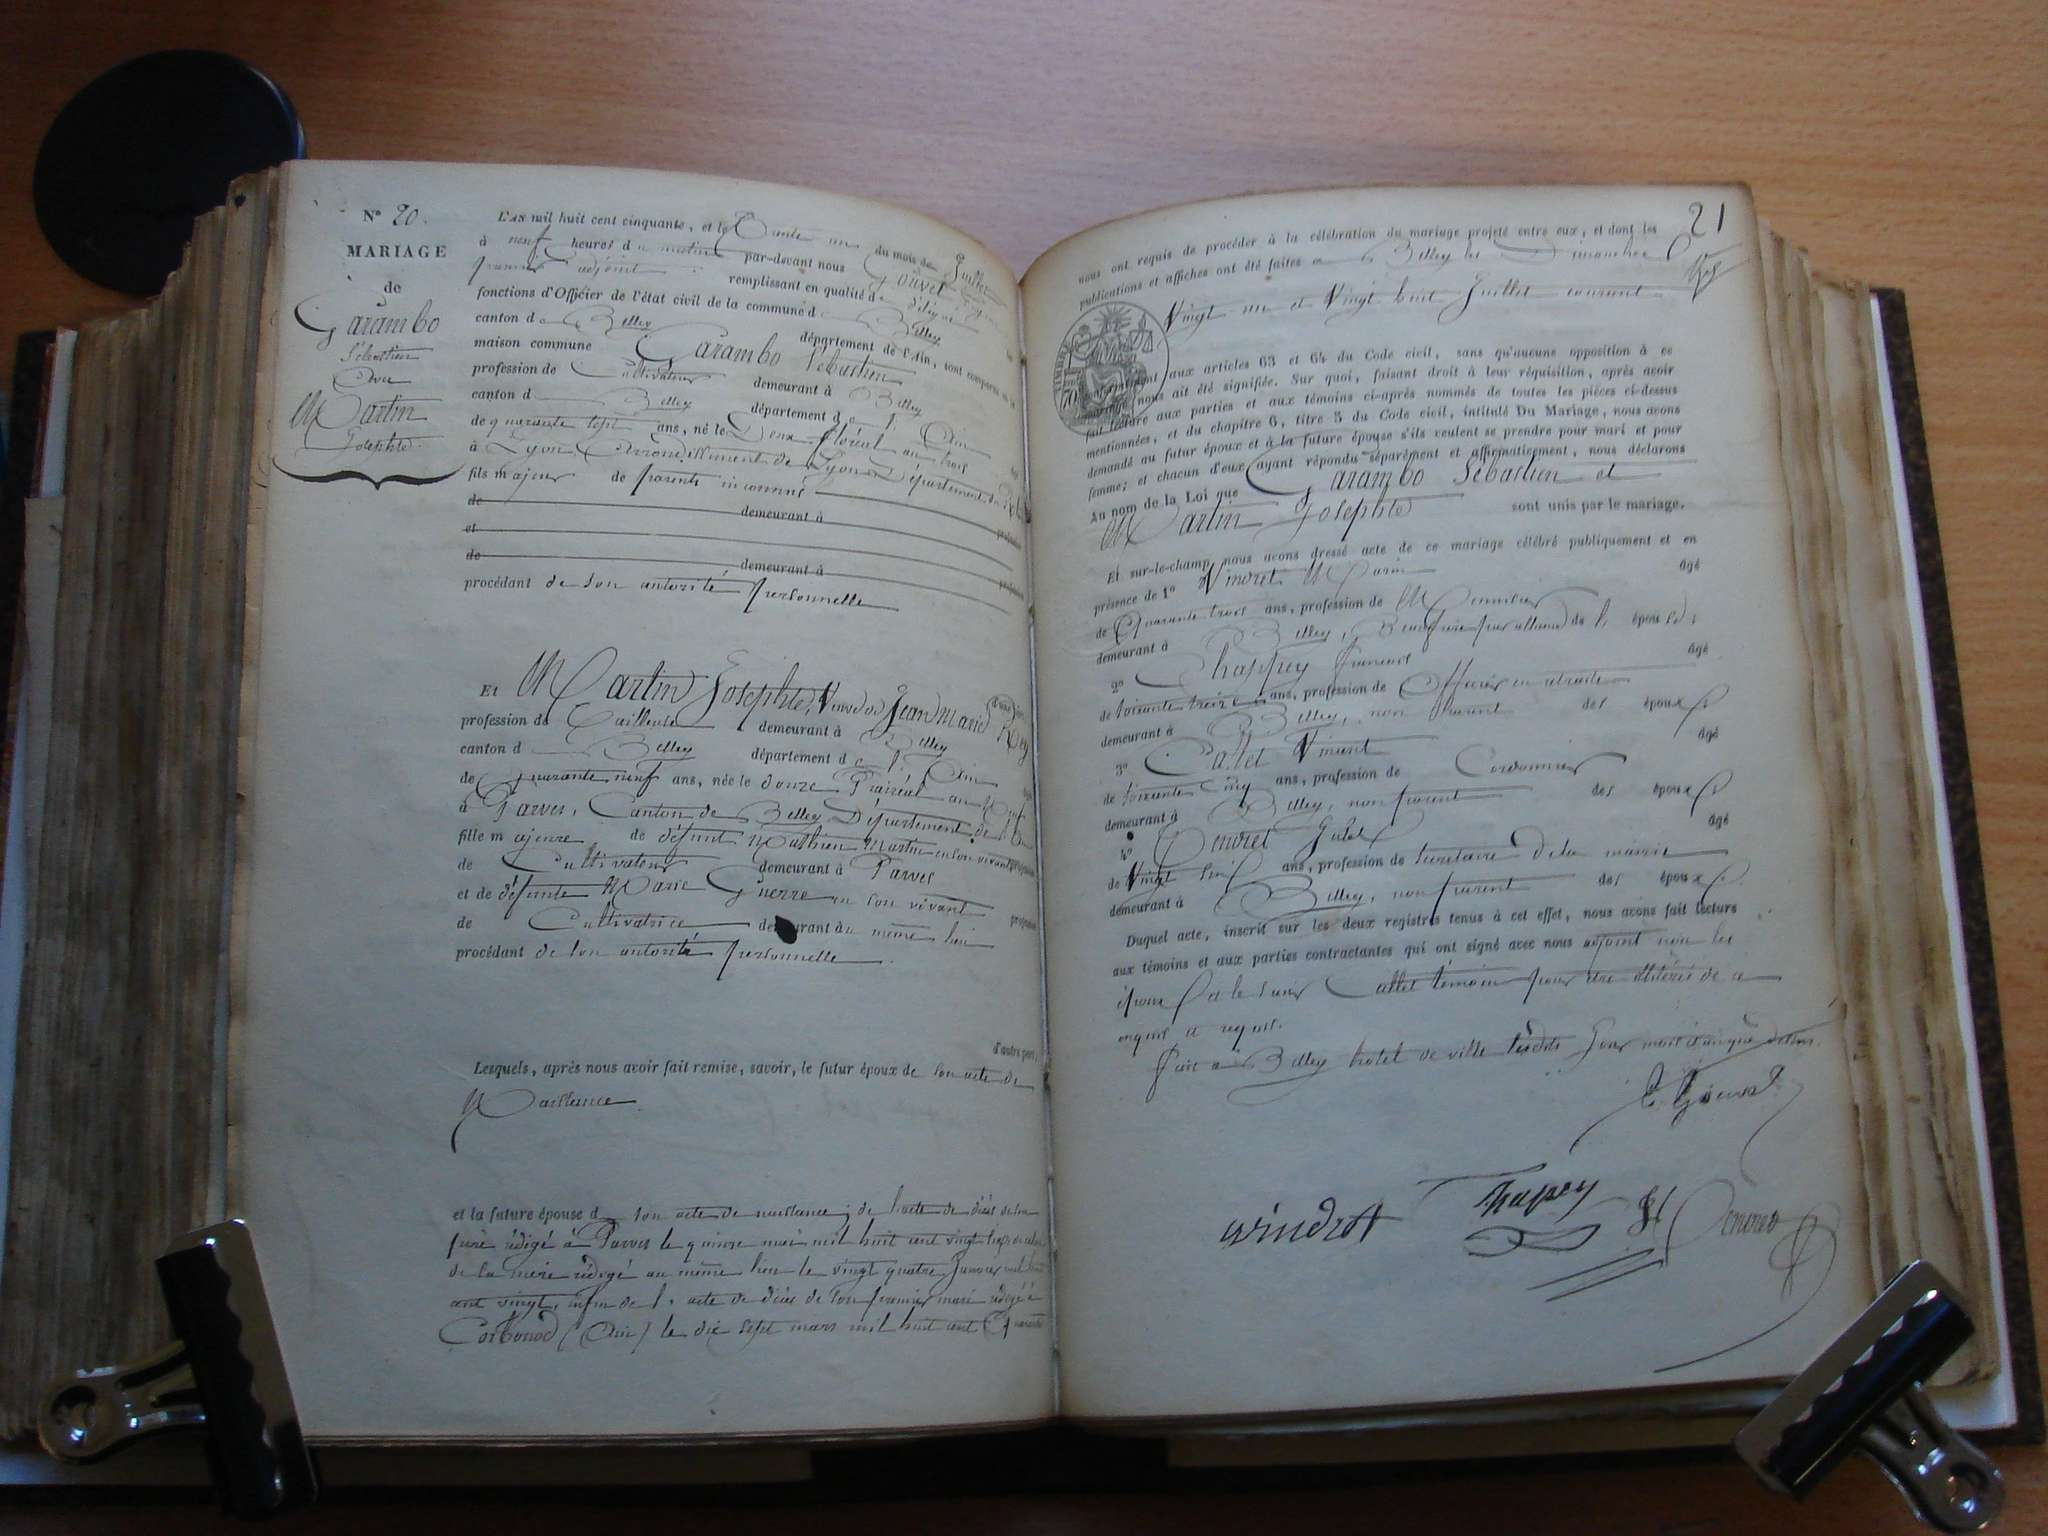 N° 20.
MARIAGE
de
Garambo
Sébastien
Avec
Martin
Josephte.
L'AN mil huit cent cinquante, et le Trente un du mois de Juillet
à neuf heures du matin par-devant nous Gouvet
premier adjoint remplissant en qualité de délégué
fonctions d'Officier de l'état civil de la commune de Belley
canton de Belley département de l'Ain, sont comparus
maison commune Garambo Sébastien
profession de Cultivateur demeurant à Belley
canton d Belley département de l'Ain
de quarante sept ans, né le Deux floréal an trois
à Lyon, Arrondissement de Lyon Département du Rhône
fils majeur de parents inconnus
de demeurant à profession
et
de demeurant à profession
procédant de son autorité personnelle
d'une part,
Et Martin Josephte, Veuve de Jean Marie Rey
profession de Tailleuse demeurant à Belley
canton d Belley département de l'Ain
de Quarante neuf ans, née le douze Prairéal an Neuf
à Parves, Canton de Belley Département de l'Ain
fille majeure de défunt Mathieu Martin en son vivant profession
de Cultivateur demeurant à Parves
et de défunte Marie Guerre en son vivant profession
de Cultivatrice demeurant au même lieu
procédant de son autorité personnelle.
d'autre part,
Lesquels, après nous avoir fait remise, savoir, le futur époux de son acte de
Naissance
et la future épouse d son acte de naissance; de l'acte de décès de son
père rédigé à Parves le quinze mai mil huit cent vingt de celui
de la mère rédigé au même lieu le vingt quatre Janvier mil huit
cent vingt, enfin de l'acte de décès de son premier mari rédigé à
Corbonod (Ain) le dix sept mars mil huit cent Quarante
21
nous ont requis de procéder à la célébration du mariage projeté entre eux, et dont les
publications et affiches ont été faites à Belley les Dimanches
Vingt un et Vingt huit Juillet courant
TIMBRE
70
conformément aux articles 63 et 64 du Code civil, sans qu'aucune opposition à ce
mariage nous ait été signifiée. Sur quoi, faisant droit à leur réquisition, après avoir
fait lecture aux parties et aux témoins ci-après nommés de toutes les pièces ci-dessus
mentionnées, et du chapitre 6, titre 5 du Code civil, intitulé Du Mariage, nous avons
demandé au futur époux et à la future épouse s'ils veulent se prendre pour mari et pour
femme; et chacun d'eux ayant répondu séparément et affirmativement, nous déclarons
Au nom de la Loi que Garambo Sébastien et
Martin Josephte sont unis par le mariage.
Et sur-le-champ nous avons dressé acte de ce mariage célébré publiquement et en
présence de 1° Vindret Marin âgé
de Quarante trois ans, profession de Menuisier
demeurant à Belley, Beau frère par alliance de l'épouse;
2° Chappey François âgé
de soixante treize ans, profession de Officier en retraite
demeurant à Belley, non parent des époux
3° Callet Vincent âgé
de soixante cinq ans, profession de Cordonnier
demeurant à Belley, non parent des époux
4° Genvret Jules âgé
de Vingt ans, profession de Secrétaire de la mairie
demeurant à Belley, non parent des époux.
Duquel acte, inscrit sur les deux registres tenus à cet effet, nous avons fait lecture
aux témoins et aux parties contractantes qui ont signé avec nous adjoint non les
époux et le sieur Callet témoin pour être illitérés de ce
enquis et requis.
Fait à Belley hotel de ville lesdits Jour mois et an que dessus.
Gouvet
Vindret
Chapey